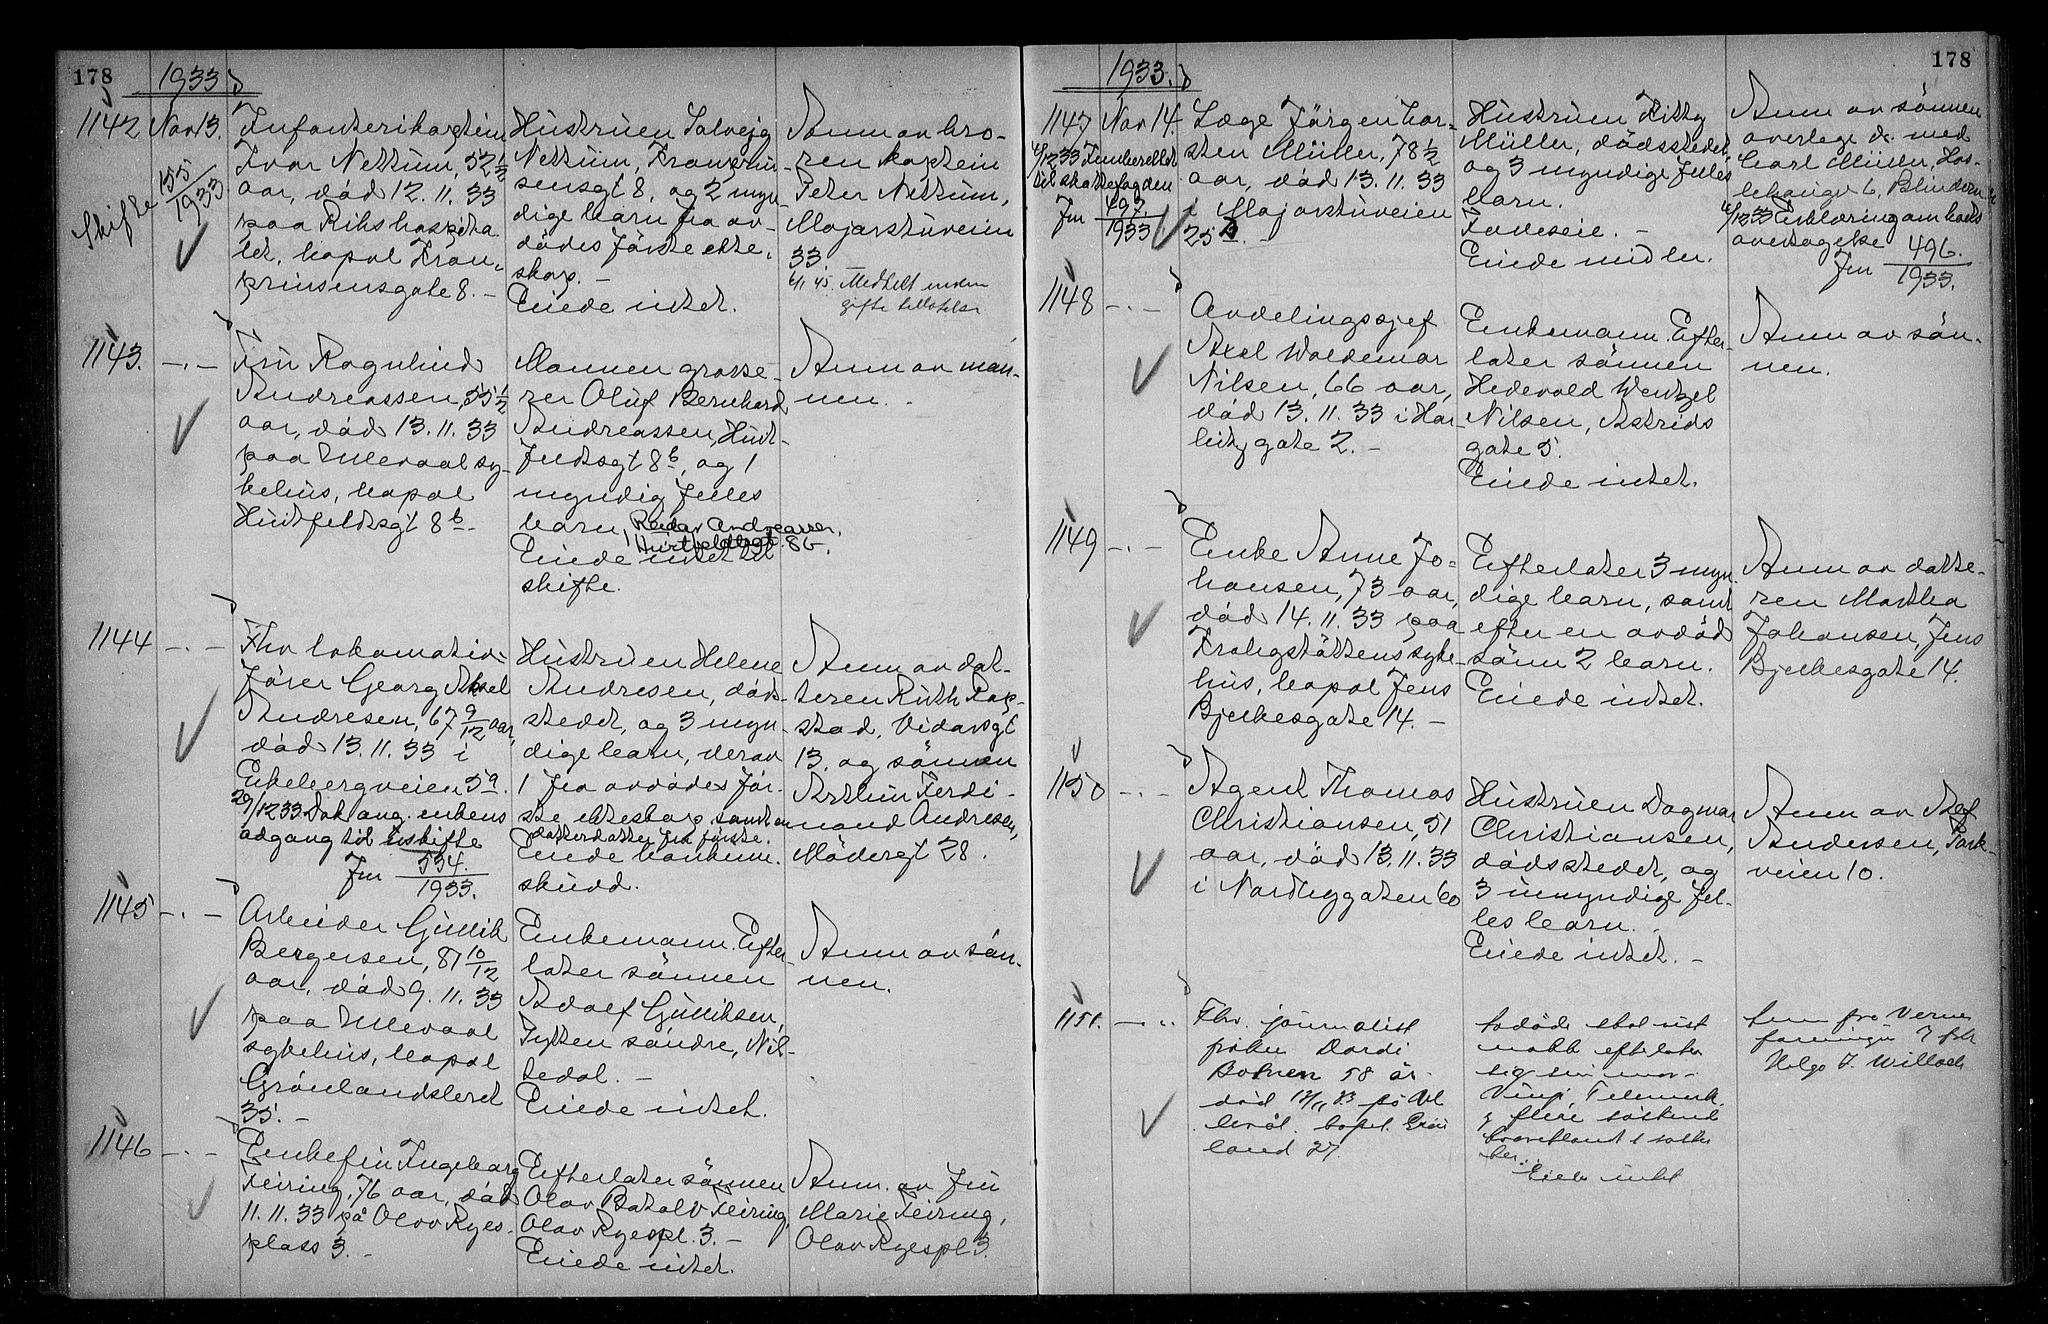 178
1933
1142
Nov 13.
Skifte 155
1933
Infanterikaptein
Ivar Nettum, 52 1/2
aar, död 12.11.33
paa Rikshospita
let, bopal Kron-
prinsensgate 8. -
Hustruen Solveig
Nettum, Kronprin
sensgt 8, og 2 myn
dige barn fra av-
dödes förste ekte-
skap. -
Eiede intet.
Anm av bro-
ren kaptein
Peter Nettum,
Majorstuveien
33
Meddelt
gifte
1143. -.-
Fru Ragnhild
Andreassen, 55 1/2
aar, död 13.11.33
paa Ullevaal sy-
kehus, bopal
Huitfeldtsgt 8 b -
Mannen grosse-
rer Oluf Bernhard
Andreassen, Huit-
feldtsgt 8 b, og 1
myndig felles
barn, Reidar Andreassen,
Huitfeldtsgt 8b.
Eiede intet til
skifte.
Anm av man-
nen. -
1144 -.-
Fhv lokomotiv-
förer Georg Aksel
Andresen, 67 9/12 aar,
död 13.11.33 i
Ekebergveien 5 a.
29/12 33 Dok ang. enkens
adgang til uskifte
Jnr 534.
1933.
Hustruen Helene
Andresen, döds-
stedet, og 3 myn-
dige barn, derav
1 fra avdödes för-
ste ekteskap samt en
datterdatter fra förste.
Eiede bankinn-
skudd.
Anm av dat-
teren Ruth Rop-
stad, Vidarsgt
13. og sönnen
Arthur Ferdi-
nand Andresen,
Mödregt 28.
1145 -.-
Arbeider Gullik
Bergersen, 81 10/12
aar, död 9.11.33
paa Ullevaal
sykehus, bopal
Grönlandsleret
35. -
Enkemann. Efter
later sönnen
Adolf Gulliksen,
Tytten söndre, Nit-
tedal. -
Eiede intet.
Anm av sön-
nen.
1146 -.-
Enkefru Ingeborg
Feiring, 76 aar, död
11.11.33 på Olav Ryes-
plass 3. -
Efterlater sönnen
Olav Batalv Feiring,
Olav Ryespl. 3. -
Eiede intet.
Anm. av fru
Marie Feiring,
Olav Ryespl 3.
1933.
178
1147
Nov 14.
4/12 33 Innberettet
til skattefogden
Jnr 497.
1933
Læge Jörgen Tor-
sten Müller, 78 1/2
aar, död 13.11.33
i Majorstuveien
25 -
Hustrum Kitty
Müller, dödsstedet,
og 3 myndige felles
barn.
Födeseie. -
Eiede midler.
Anm av sönnen
overlege dr. med
Carl Müller,
6, Blindern
4/12 33 Erklæring om bobs
overtagelse
Jnr 496.
1933.
1148 -.-
Avdelingssjef
Axel Waldemar
Nilsen, 66 aar,
död 13.11.33 i Har
bitzgate 2. -
Enkemann. Efter-
later sönnen
Hedevold Wentzel
Nilsen, Astrids
gate 5.
Eiede intet.
Anm av sön-
nen.
1149 -.-
Enke Anne Jo-
hansen, 73 aar,
död 14.11.33 paa
Krohgstöttens syke-
hus, bopal Jens
Bjelkesgate 14. -
Efterlater 3 myn-
dige barn, samt
efter en avdöd
sönn 2 barn.
Eiede intet.
Anm av datte-
ren Martha
Johansen, Jens
Bjelkesgate 14.
1150 -.-
Agent Thomas
Christiansen, 51
aar, död 13.11.33
i Nordbygaten 60
Hustruen Dagmar
Christiansen,
dödsstedet, og
3 umyndige fel-
les barn. -
Eiede intet. -
Anm av Axel
Andersen, Park-
veien 10.
1151. -.-
Fhv. journalist
fröken Dordi
58 år
död 13/11 33 på Ul
levål. bopel Grön
land 27.
Avdöde skal vist
nokk efterlate
sig sin mor
Vinje, Telemark,
og flere söskend
Eiede intet
Anm fra Verne
foreningen 7 ved
Helge J. Willoch